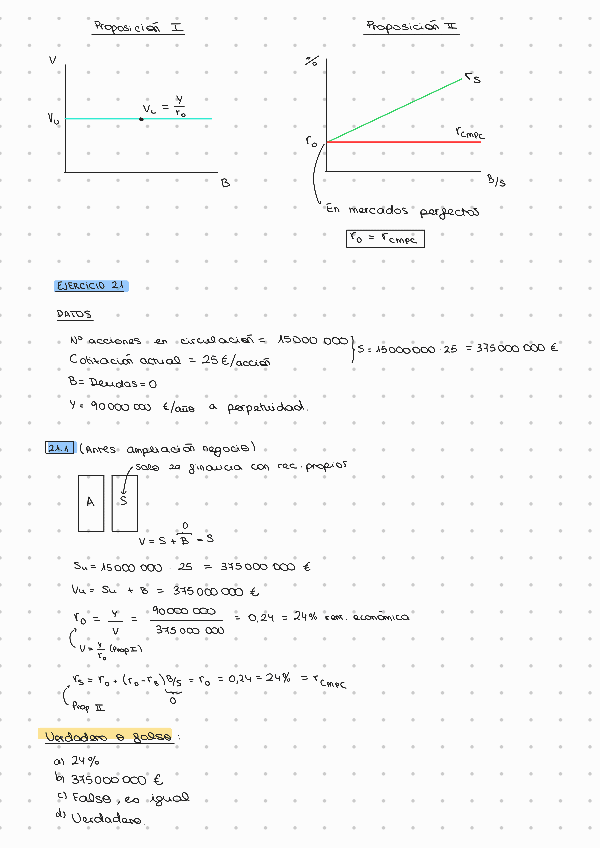 Proposición I
Proposición II
V
Vu
Vu = Y/r₀
B
%
rs
r₀
rcmpc
B/S
En mercados perfectos
r₀ = rcmpc
EJERCICIO 2.1
DATOS
Nº acciones en circulación = 15 000 000
Cotización actual = 25 €/acción
S = 15 000 000 · 25 = 375 000 000 €
B = Deudas = 0
Y = 90 000 000 €/año a perpetuidad.
2.1.1 (Antes ampliación negocio)
Solo se financia con rec. propios
A
S
0
V = S + B = S
Su = 15 000 000 · 25 = 375 000 000 €
Vu = Su + B = 375 000 000 €
r₀ = Y/V = 90 000 000/375 000 000 = 0,24 = 24% ren. económica
V = Y/r₀ (Prop I)
rs = r₀ + (r₀ - rB) B/S = r₀ = 0,24 = 24% = rcmpc
0
Prop II
Verdadero o falso :
a) 24%
b) 375 000 000 €
c) Falso, es igual
d) Verdadero.